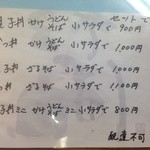 子丼 かけ うどん そば 小サラダで セットで 900円
丼 かけ うどん そば 小サラダで 1,000円
子丼 ざるそば 小サラダで 1,000円
丼 ざるそば 小サラダで 1,100円
子丼ミニ かけ うどん そば ミニ サラダで 800円
配達不可